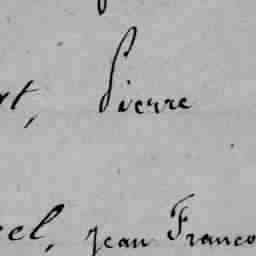 rt, Pierre
el, jean Franco